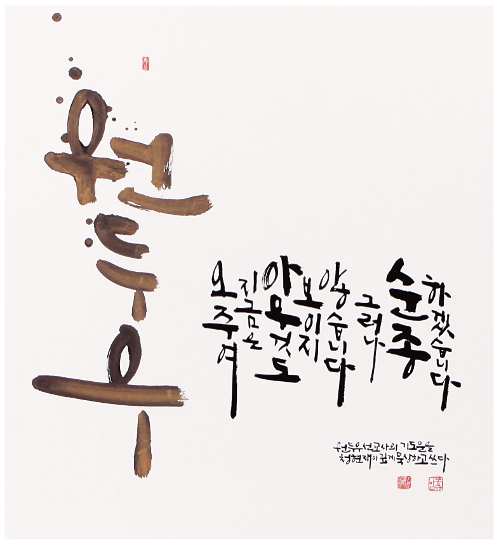 원두우
오 주여
지금은
아무것도
보이지
않습니다
그러나
순종
하겠습니다
원두우 선교사의 기도문을
청현재이 깊게 묵상하고 쓰다